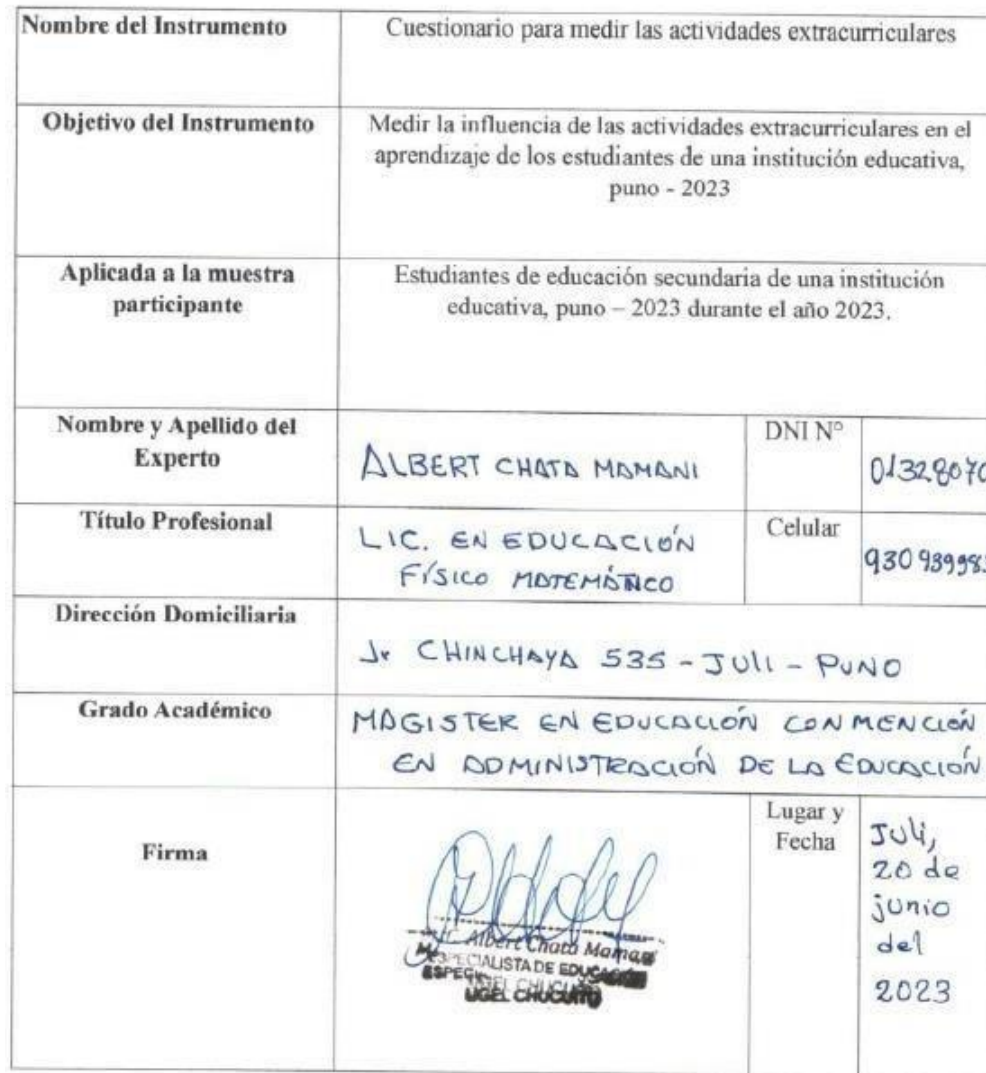 Nombre del Instrumento
Cuestionario para medir las actividades extracurriculares
Objetivo del Instrumento
Medir la influencia de las actividades extracurriculares en el
aprendizaje de los estudiantes de una institución educativa,
puno - 2023
Aplicada a la muestra
participante
Estudiantes de educación secundaria de una institución
educativa, puno – 2023 durante el año 2023.
Nombre y Apellido del
Experto
ALBERT CHATA MAMANI
DNI N°
01328070
Título Profesional
LIC. EN EDUCACIÓN
FÍSICO MATEMÁTICO
Celular
93093998
Dirección Domiciliaria
Jr CHINCHAYA 535 - JULI - PUNO
Grado Académico
MAGISTER EN EDUCACIÓN CON MENCIÓN
EN ADMINISTRACIÓN DE LA EDUCACIÓN
Firma
Albert Chata Mamani
ESPECIALISTA DE EDUCACIÓN
UGEL CHUCUITO
Lugar y
Fecha
Juli,
20 de
junio
del
2023